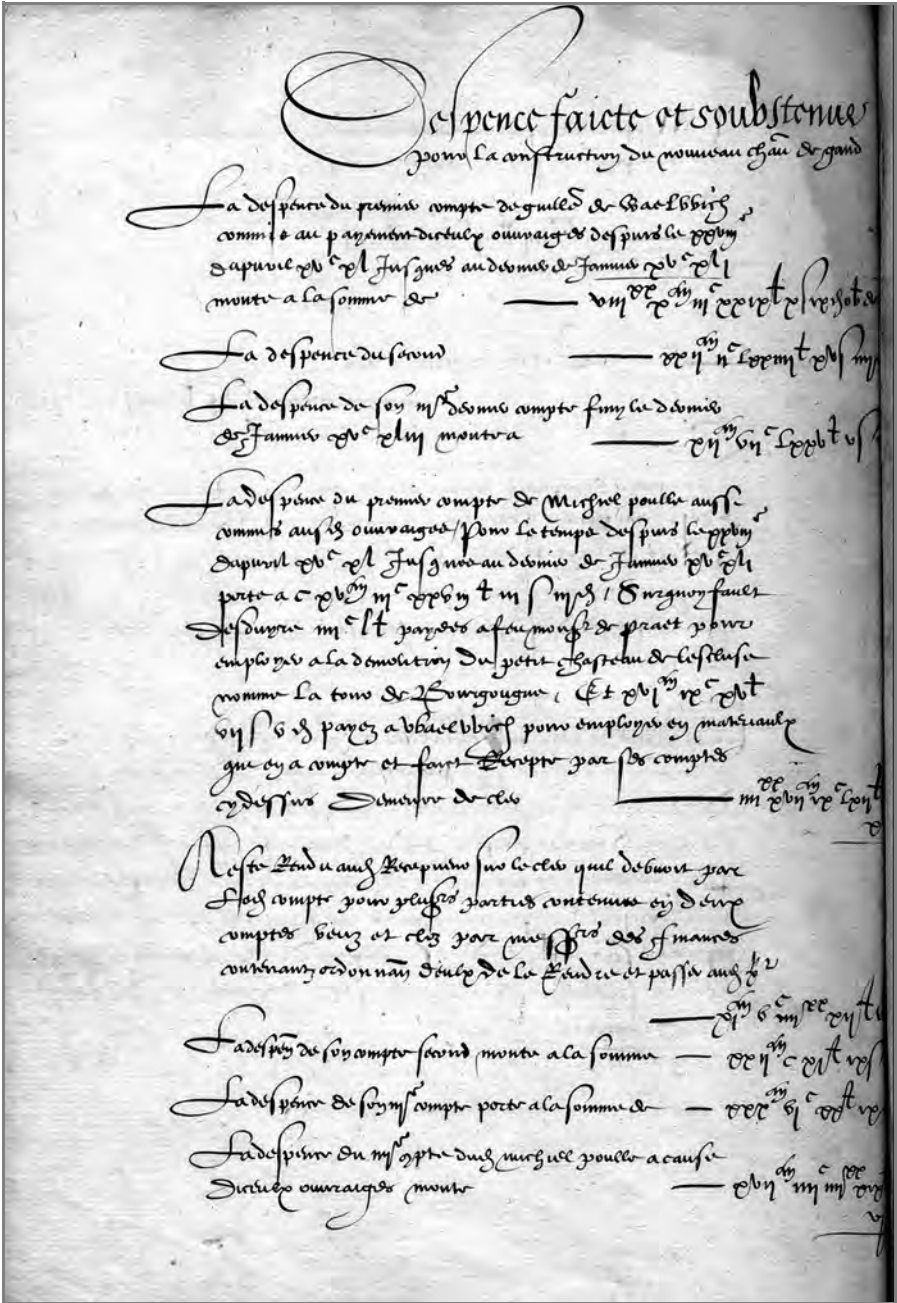 Despence faicte et soubstenue
pour la construction du nouveau chau de gand
La despence du premier compte de guille de Waelwich
commis au payement diceulx ouvraiges despuis le xxviiie
dapvril xvc xl Jusques au dernier de Janvier xvc xli
monte a la somme de — viiixx xm iiic xxix
La despence du second — xxiim iic lxxiiii xv s iiii
La despence de son iiie dernier compte finy le dernier
de Janvier xvc xliii monte a — xiim viic lxxv v s
La despence du premier compte de Michiel poulle aussi
commis ausd ouvraiges / Pour le temps despuis le xxviiie
dapvril xvc xl Jusques au dernier de Janvier xvc xli
porte a c xvm iiic xxviii iii s iii d / Surquoy fault
desduyre iiiic l payees a feu monsr de praet pour
employer a la demolition du petit chasteau de lescluse
nomme la tour de Bourgougne / Et xvim ixc xv
vii s v d payez a Wbaelwich pour employer en materiaulx
que en a compte et faict Recepte par ses comptes
cydessus Demeure de cler — iiiixx xviim ixc lxii
x
Reste Rendu aud Recepveur sur le cler quil debvoit par
sond compte pour plusrs parties contenues en deux
comptes veuz et cloz par messrs des finances
contenant ordonnan deulx de le Rendre et passer aud
— xim vc iiiixx xii
La despen de son compte second monte a la somme — xxiim c xi ix s
La despence de son iiie compte porte a la somme de — xxxm vic xx ix
La despence du iiiie compte dud michiel poulle a cause
diceulx ouvraiges monte — xviim iiiic iiiixx xix
v